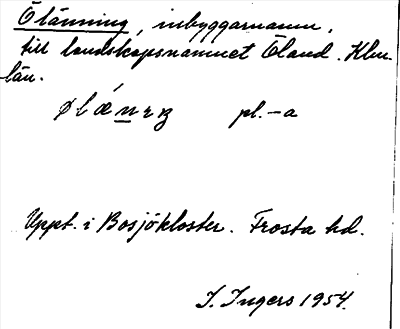 Ölänning, inbyggarnamn,
till landskapsnamnet Öland. Klm.
län.
ølǽnɪŋ pl. -a
Uppt. i Bosjökloster. Frosta hd.
I. Ingers 1954.